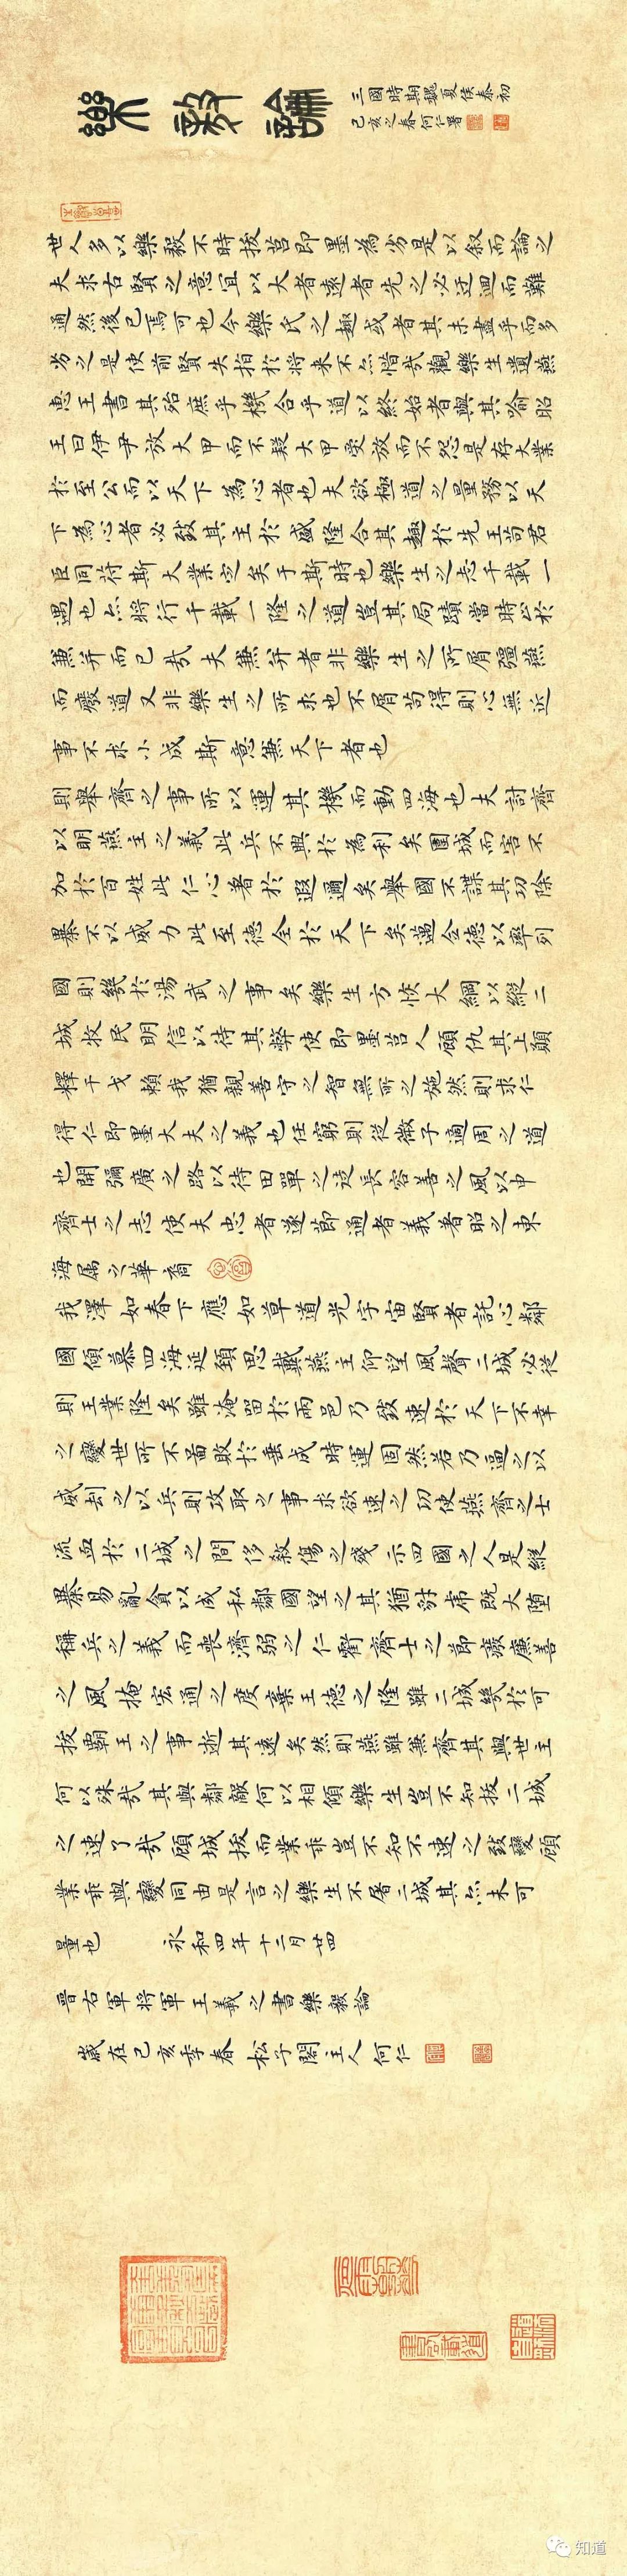 樂毅論
三國時期魏夏侯泰初
己亥之春何仁署
世人多以樂毅不時拔莒即墨為劣是以叙而論之
夫求古賢之意宜以大者遠者先之必迂迴而難
通然後已焉可也今樂氏之趣或者其未盡乎而多
劣之是使前賢失指於將来不亦惜哉觀樂生遺燕
惠王書其殆庶乎機合乎道以終始者與其喻昭
王曰伊尹放大甲而不疑大甲受放而不怨是存大業
於至公而以天下為心者也夫欲極道之量務以天
下為心者必致其主於盛隆合其趣於先王苟君
臣同苻斯大業定矣于斯時也樂生之志千載一
遇也亦將行千載一隆之道豈其局蹟當時止於
兼并而已哉夫兼并者非樂生之所屑彊燕
而癈道又非樂生之所求也不屑苟得則心無近
事不求小成斯意兼天下者也
則舉齊之事所以運其機而動四海也夫討齊
以明燕主之義此兵不興於為利矣圍城而害不
加於百姓此仁心著於遐邇矣舉國不謀其功除
暴不以威力此至德全於天下矣邁全德以率列
國則幾於湯武之事矣樂生方恢大綱以縱二
城牧民明信以待其弊使即墨莒人顧仇其上願
釋干戈賴我猶親善守之智無所之施然則求仁
得仁即墨大夫之義也任窮則從微子適周之道
也開彌廣之路以待田單之徒長容善之風以申
齊士之志使夫忠者遂節通者義著昭之東
海属之華裔
我澤如春下應如草道光宇宙賢者託心鄰
國傾慕四海延頸思戴燕主仰望風聲二城必從
則王業隆矣雖淹留於兩邑乃致速於天下不幸
之變世所不圖敗於垂成時運固然若乃逼之以
威刦之以兵則攻取之事求欲速之功使燕齊之士
流血於二城之間侈殺傷之殘示四國之人是縱
暴易亂貪以成私鄰國望之其猶豺虎既大墮
稱兵之義而喪濟弱之仁虧齊士之節癈廉善
之風掩宏通之度棄王德之隆雖二城幾於可
拔霸王之事逝其遠矣然則燕雖兼齊其與世主
何以殊哉其與鄰敵何以相傾樂生豈不知拔二城
之速了哉顧城拔而業乖豈不知不速之致變顧
業乖與變同由是言之樂生不屠二城其亦未可
量也 永和四年十二月廿四
晋右軍將軍王羲之書樂毅論
歲在己亥季春 松子閣主人何仁
知道